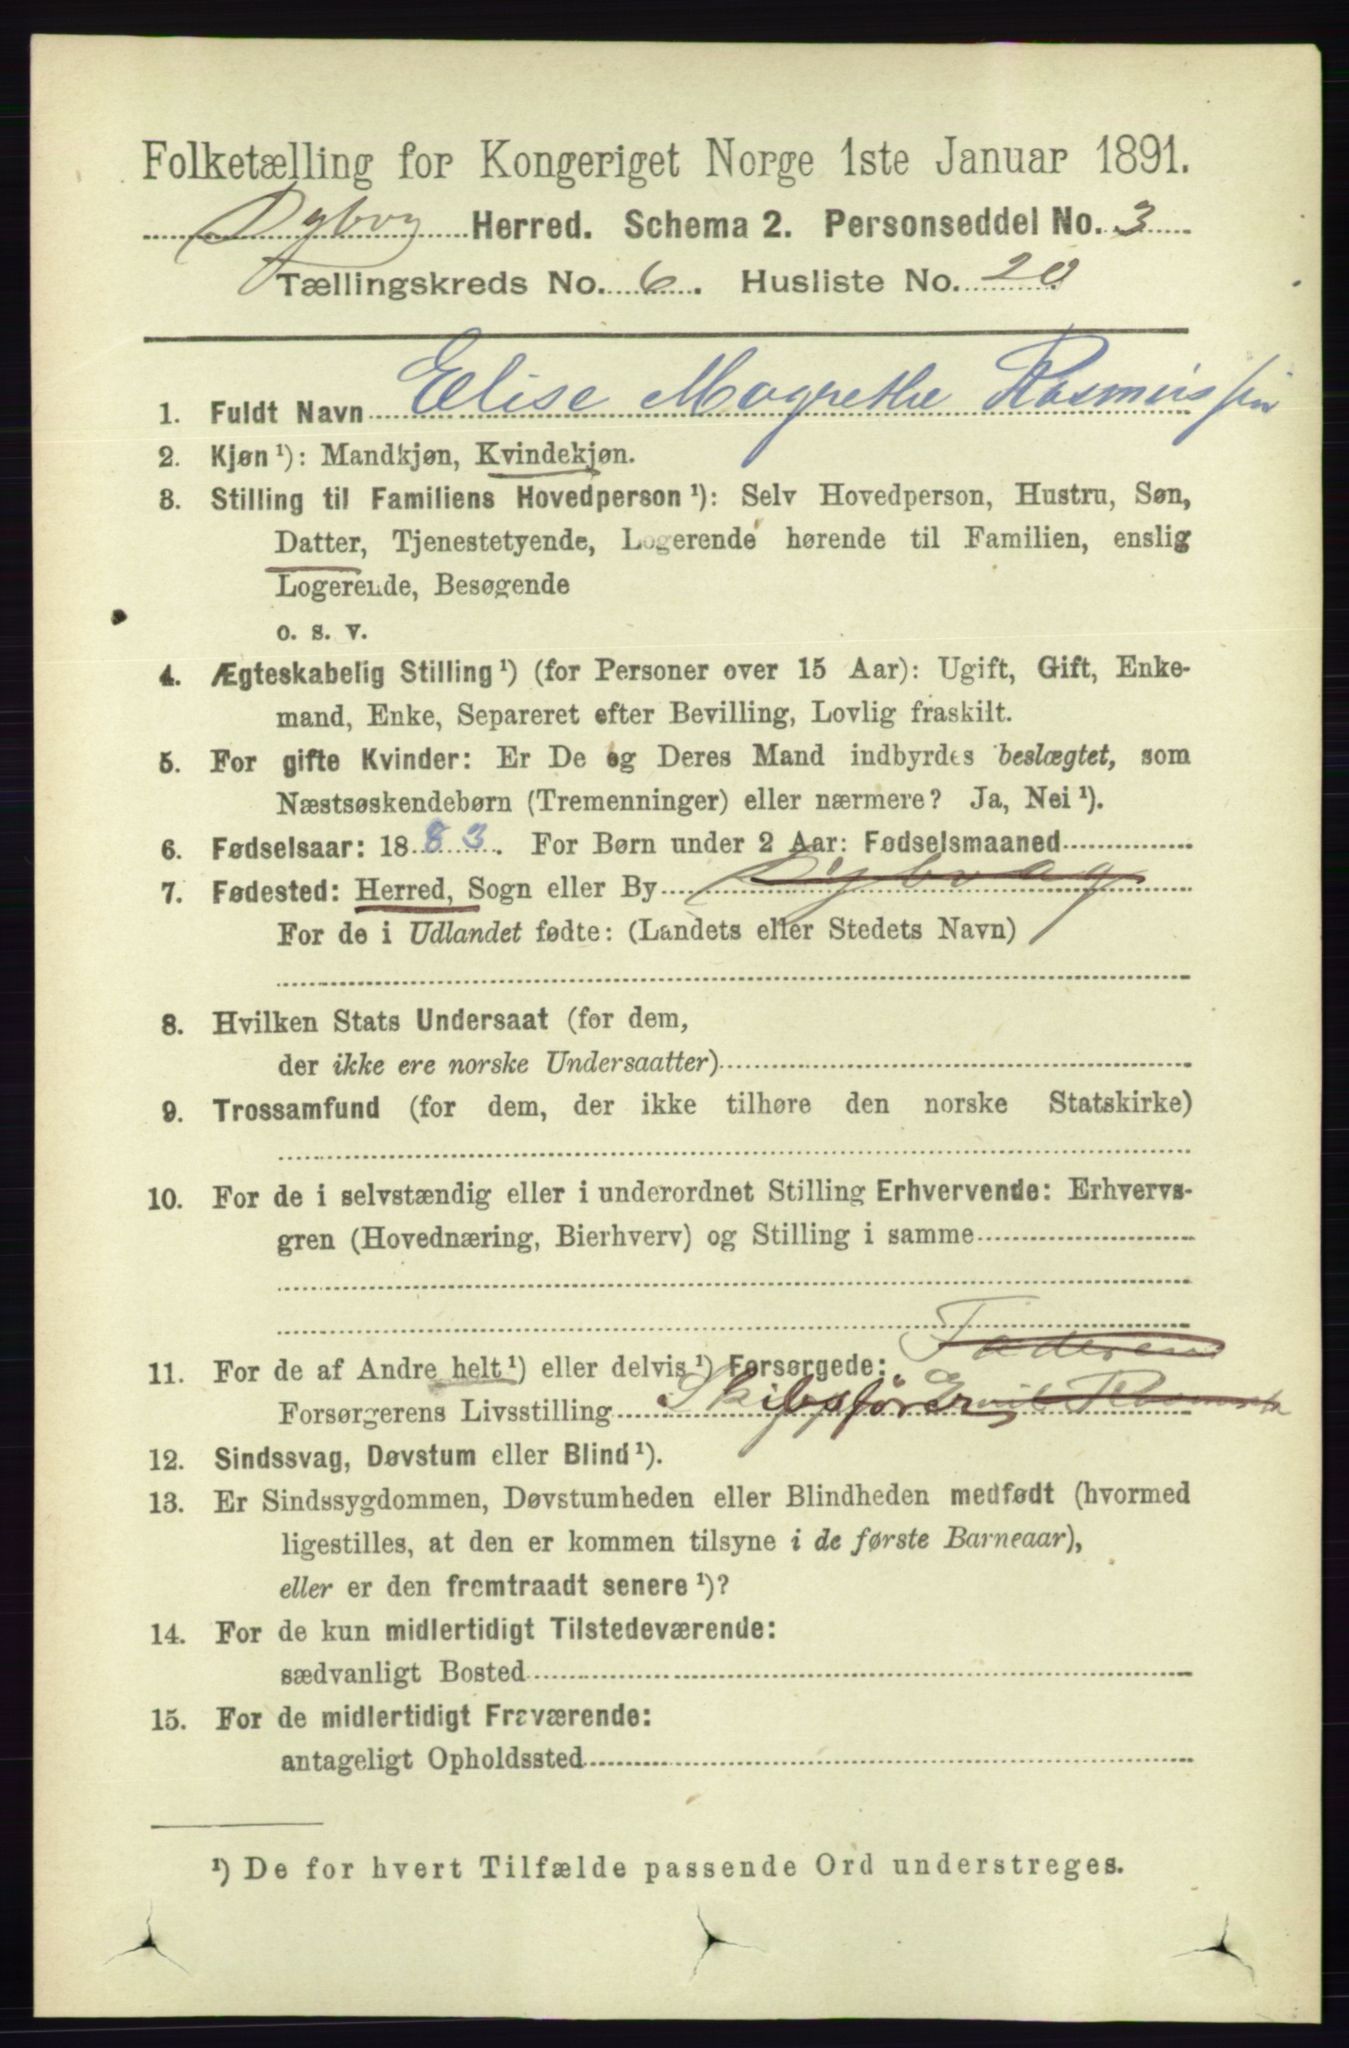 Folketælling for Kongeriget Norge 1ste Januar 1891.
Dybvg Herred. Schema 2. Personseddel No. 3
Tællingskreds No. 6. Husliste No. 20
1. Fuldt Navn Elise Magrethe Rasmussen
2. Kjøn ¹): Mandkjøn, Kvindekjøn.
3. Stilling til Familiens Hovedperson ¹): Selv Hovedperson, Hustru, Søn,
Datter, Tjenestetyende, Logerende hørende til Familien, enslig
Logerende, Besøgende
o. s. v.
4. Ægteskabelig Stilling ¹) (for Personer over 15 Aar): Ugift, Gift, Enke-
mand, Enke, Separeret efter Bevilling, Lovlig fraskilt.
5. For gifte Kvinder: Er De og Deres Mand indbyrdes beslægtet, som
Næstsøskendebørn (Tremenninger) eller nærmere? Ja, Nei ¹).
6. Fødselsaar: 1883. For Børn under 2 Aar: Fødselsmaaned
7. Fødested: Herred, Sogn eller By Dybvag
For de i Udlandet fødte: (Landets eller Stedets Navn)
8. Hvilken Stats Undersaat (for dem,
der ikke ere norske Undersaatter)
9. Trossamfund (for dem, der ikke tilhøre den norske Statskirke)
10. For de i selvstændig eller i underordnet Stilling Erhvervende: Erhvervs-
gren (Hovednæring, Bierhverv) og Stilling i samme
11. For de af Andre helt ¹) eller delvis ¹) Forsørgede: Faderen
Forsørgerens Livsstilling Skibsfører
12. Sindssvag, Døvstum eller Blind ¹).
13. Er Sindssygdommen, Døvstumheden eller Blindheden medfødt (hvormed
ligestilles, at den er kommen tilsyne i de første Barneaar),
eller er den fremtraadt senere ¹)?
14. For de kun midlertidigt Tilstedeværende:
sædvanligt Bosted
15. For de midlertidigt Fraværende:
antageligt Opholdssted
¹) De for hvert Tilfælde passende Ord understreges.